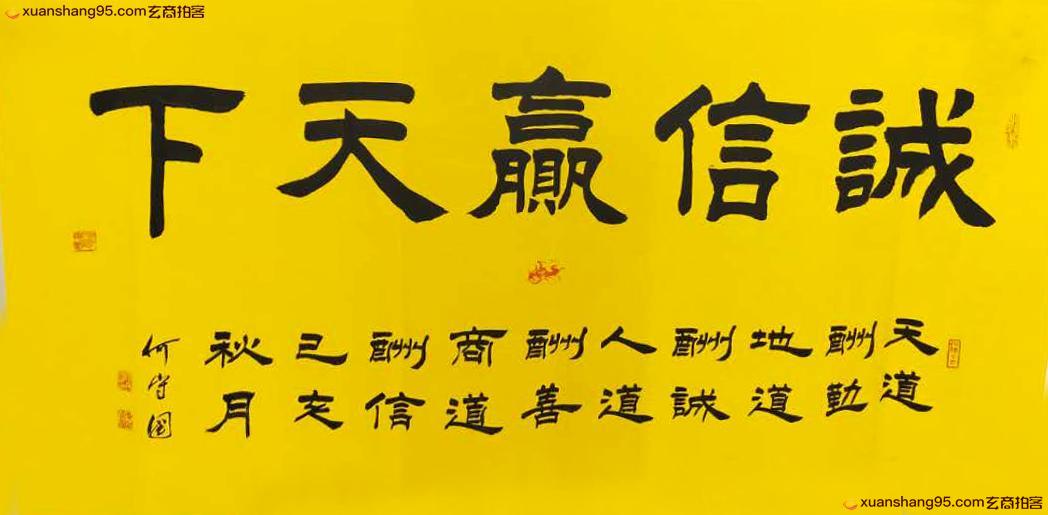 xuanshang95.com玄商拍客
誠信贏天下
天道
酬勤
地道
酬誠
人道
酬善
商道
酬信
己亥
秋月
何守國
xuanshang95.com玄商拍客